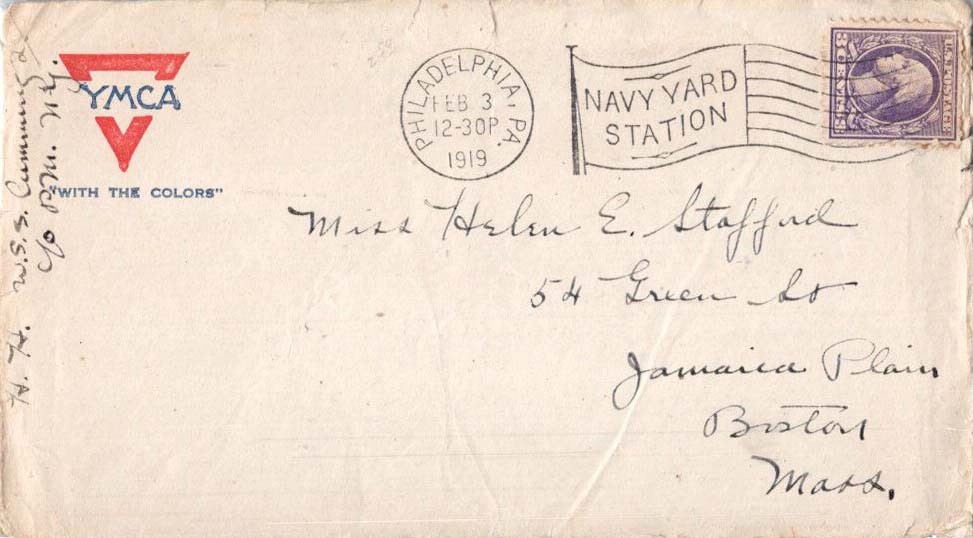 YMCA
"WITH THE COLORS"
PHILADELPHIA, PA.
FEB 3
12-30P
1919
NAVY YARD
STATION
U.S. POSTAGE
3 CENTS 3
Miss Helen E. Stafford
54 Green St
Jamaica Plain
Boston
Mass.
H. H. U.S.S. Cummings
c/o P.M. N.Y.